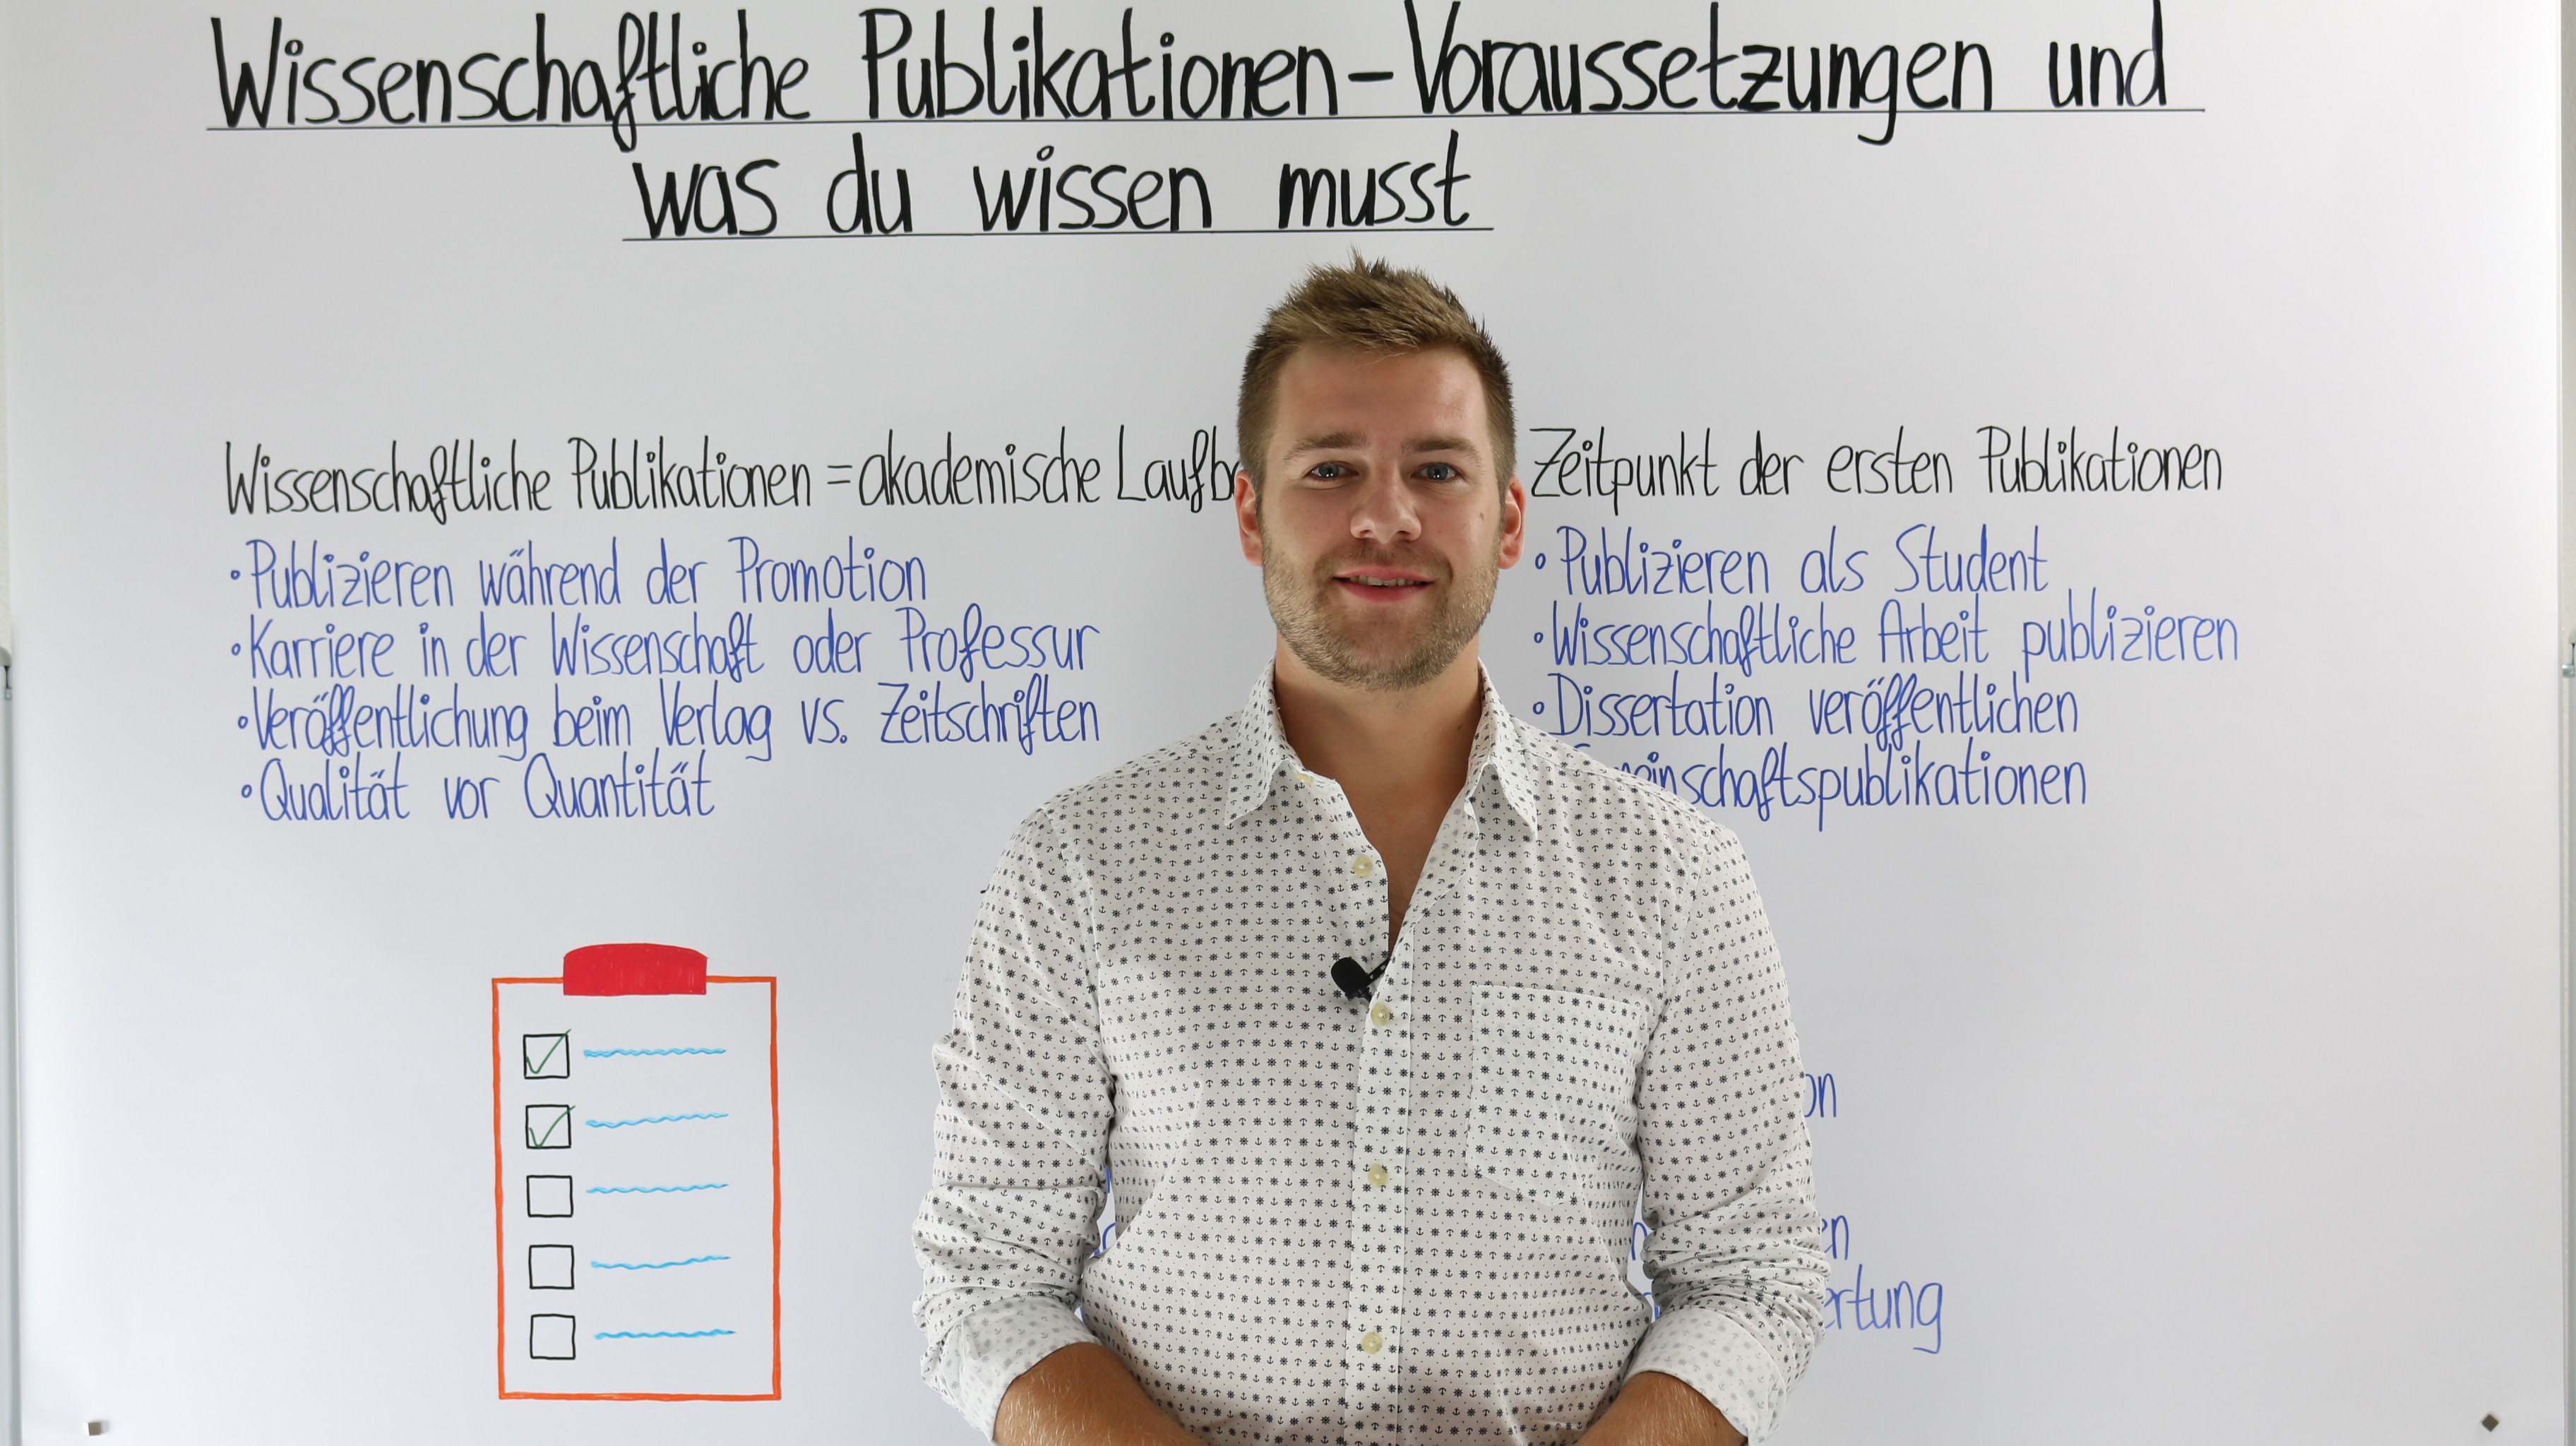 Wissenschaftliche Publikationen-Voraussetzungen und
was du wissen musst
Wissenschaftliche Publikationen = akademische
• Publizieren während der Promotion
• Karriere in der Wissenschaft oder Professur
• Veröffentlichung beim Verlag vs. Zeitschriften
• Qualität vor Quantität
Zeitpunkt der ersten Publikationen
• Publizieren als Student
• Wissenschaftliche Arbeit publizieren
• Dissertation veröffentlichen